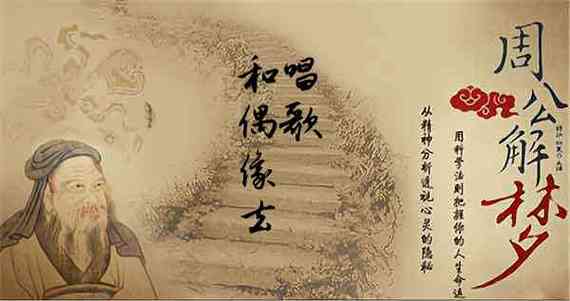 周公解梦
用科学法则把握你的人生命运
从精神分析透视心灵的隐秘
和偶像去
唱歌